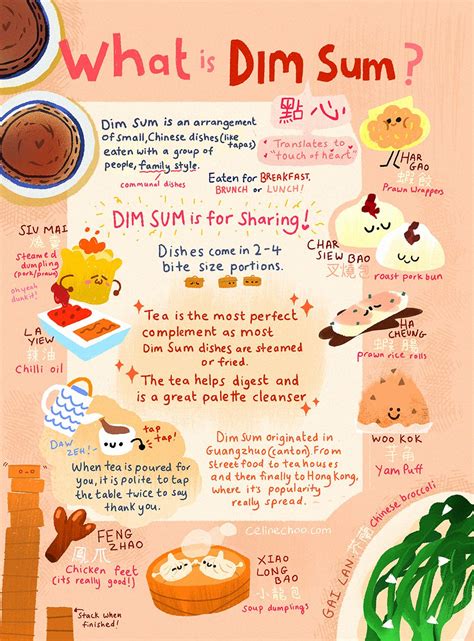 What is DIM SUM?
點心
Translates to
"touch of heart"
DIM SUM is an arrangement
of small, Chinese dishes (like
tapas)
eaten with a group of
people, family style.
communal dishes
Eaten for BREAKFAST,
BRUNCH or LUNCH!
HAR
GAO
蝦餃
Prawn Wrappers
DIM SUM is for Sharing!
Dishes come in 2-4
bite size portions.
SIU MAI
燒賣
Steamed
dumpling
(pork/prawn)
oh yeah
dunk it!
CHAR
SIEW BAO
叉燒包
roast pork bun
LA
YIEW
辣油
Chilli oil
Tea is the most perfect
complement as most
Dim Sum dishes are steamed
or fried.
The tea helps digest and
is a great palette cleanser
HA
CHEUNG
蝦腸
prawn rice rolls
WOO KOK
芋角
Yam Puff
DAW
ZEH!
tap
tap!
When tea is poured for
you, it is polite to tap
the table twice to say
thank you.
Dim Sum originated in
Guangzhuo (canton). From
Street food to tea houses
and then finally to Hong Kong,
where its popularity
really spread.
celinechoo.com
FENG
ZHAO
鳳爪
Chicken feet
(its really good!)
Stack when
finished!
XIAO
LONG
BAO
小龍包
soup dumplings
GAI LAN. 芥蘭
Chinese broccoli